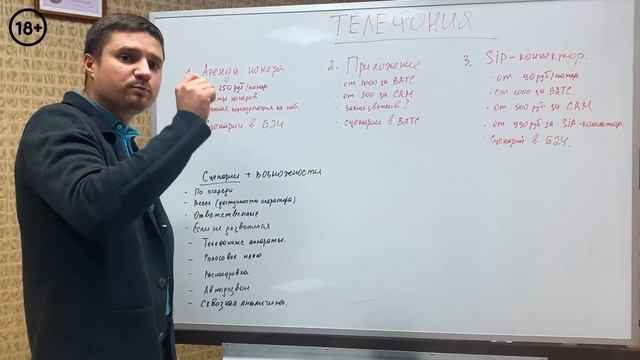 18+
ТЕЛЕФОНИЯ
1. Аренда номера
250 руб/номер
номеров
сценарии в Б24
2. Приложение
· от 1000 за ВАТС
· от 500 за CRM
· сценарии в ВАТС
3. Sip-коннектор.
· от 90 руб/номер
· от 1000 за ВАТС.
· от 500 руб за CRM
· от 990 руб за Sip-коннектор.
Сценарий в Б24.
Сценарии + возможности
- По очереди
- Всем (доступность оператора).
- Ответственные
- Если не дозвонился
- Телефонные аппараты.
- Голосовое меню
- Расшифровка
- Автообзвон
- Сквозная аналитика.